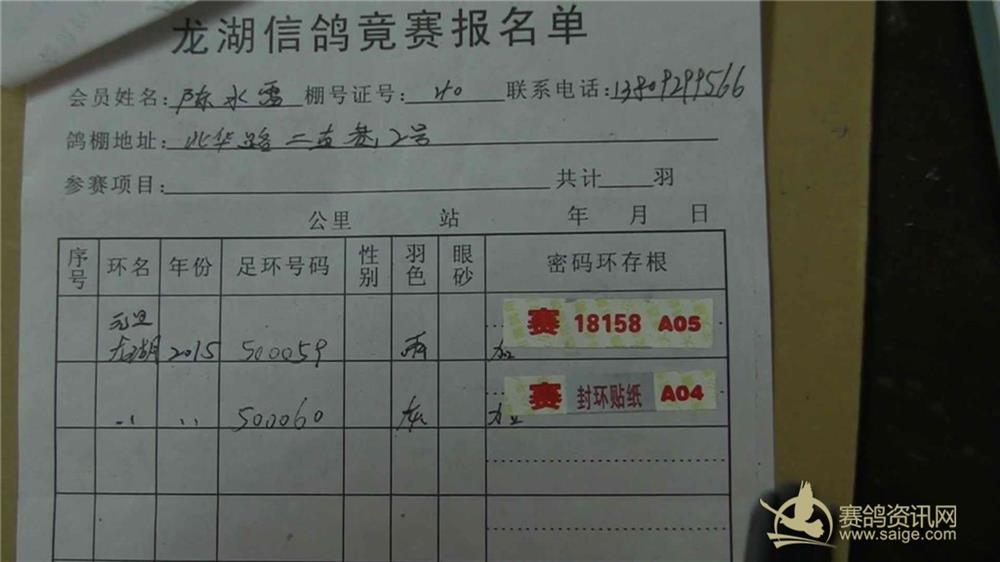 龙湖信鸽竟赛报名单
会员姓名: 陈水 棚号证号: 40 联系电话: 13809299566
鸽棚地址: 北华路二直巷12号
参赛项目: 共计 羽
公里 站 年 月 日
序号 环名 年份 足环号码 性别 羽色 眼砂 密码环存根
元旦
龙湖 2015 500059 雨 加 赛 18158 A05
〃 〃 500060 灰 加 赛 封环贴纸 A04
赛鸽资讯网
www.saige.com